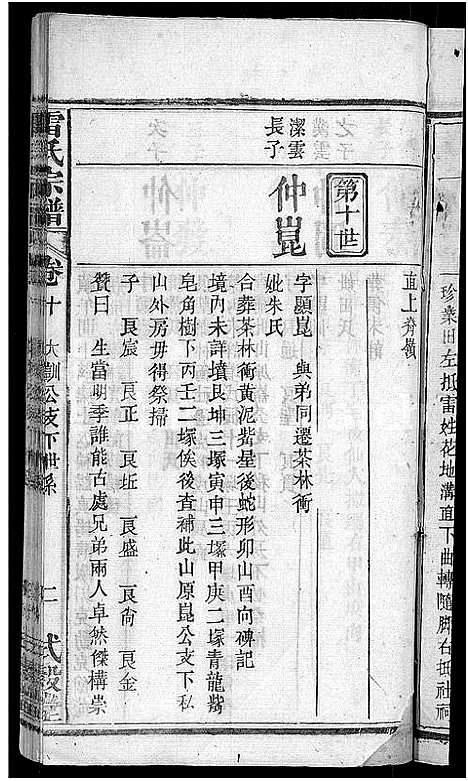 珍桑田左抵雷姓花地溝直下曲轉隨脚右抵社祠
直上脊嶺
第十世
潔雲
長子
仲崑
字顯崑 與弟同遷茶林衝
妣朱氏
合葬茶林衝黃泥嘴星後蛇形卯山酉向碑記
境內未詳墳艮坤三塚寅申三塚甲庚二塚青龍嘴
皂角樹下丙壬二塚俟後查補此山原崑公支下私
山外房毋得祭掃
子 艮宸 艮正 艮坵 艮盛 艮尙 艮金
贊曰 生當明季誰能古處兄弟兩人卓然傑構崇
雷氏宗譜
卷十 大訓公支下世系
二 式穀堂